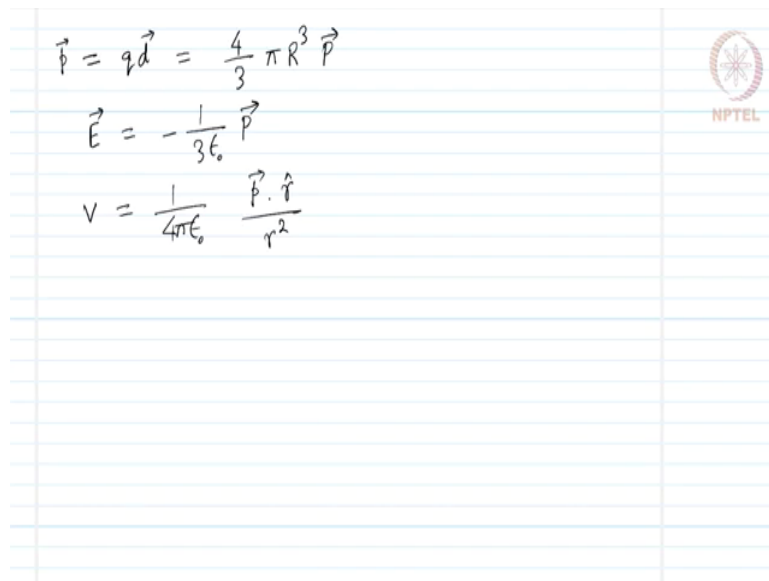 p⃗ = qd⃗ = 4/3 πR³ P⃗
E⃗ = - 1/3ε₀ P⃗
V = 1/4πε₀ p⃗ . r̂/r²
NPTEL